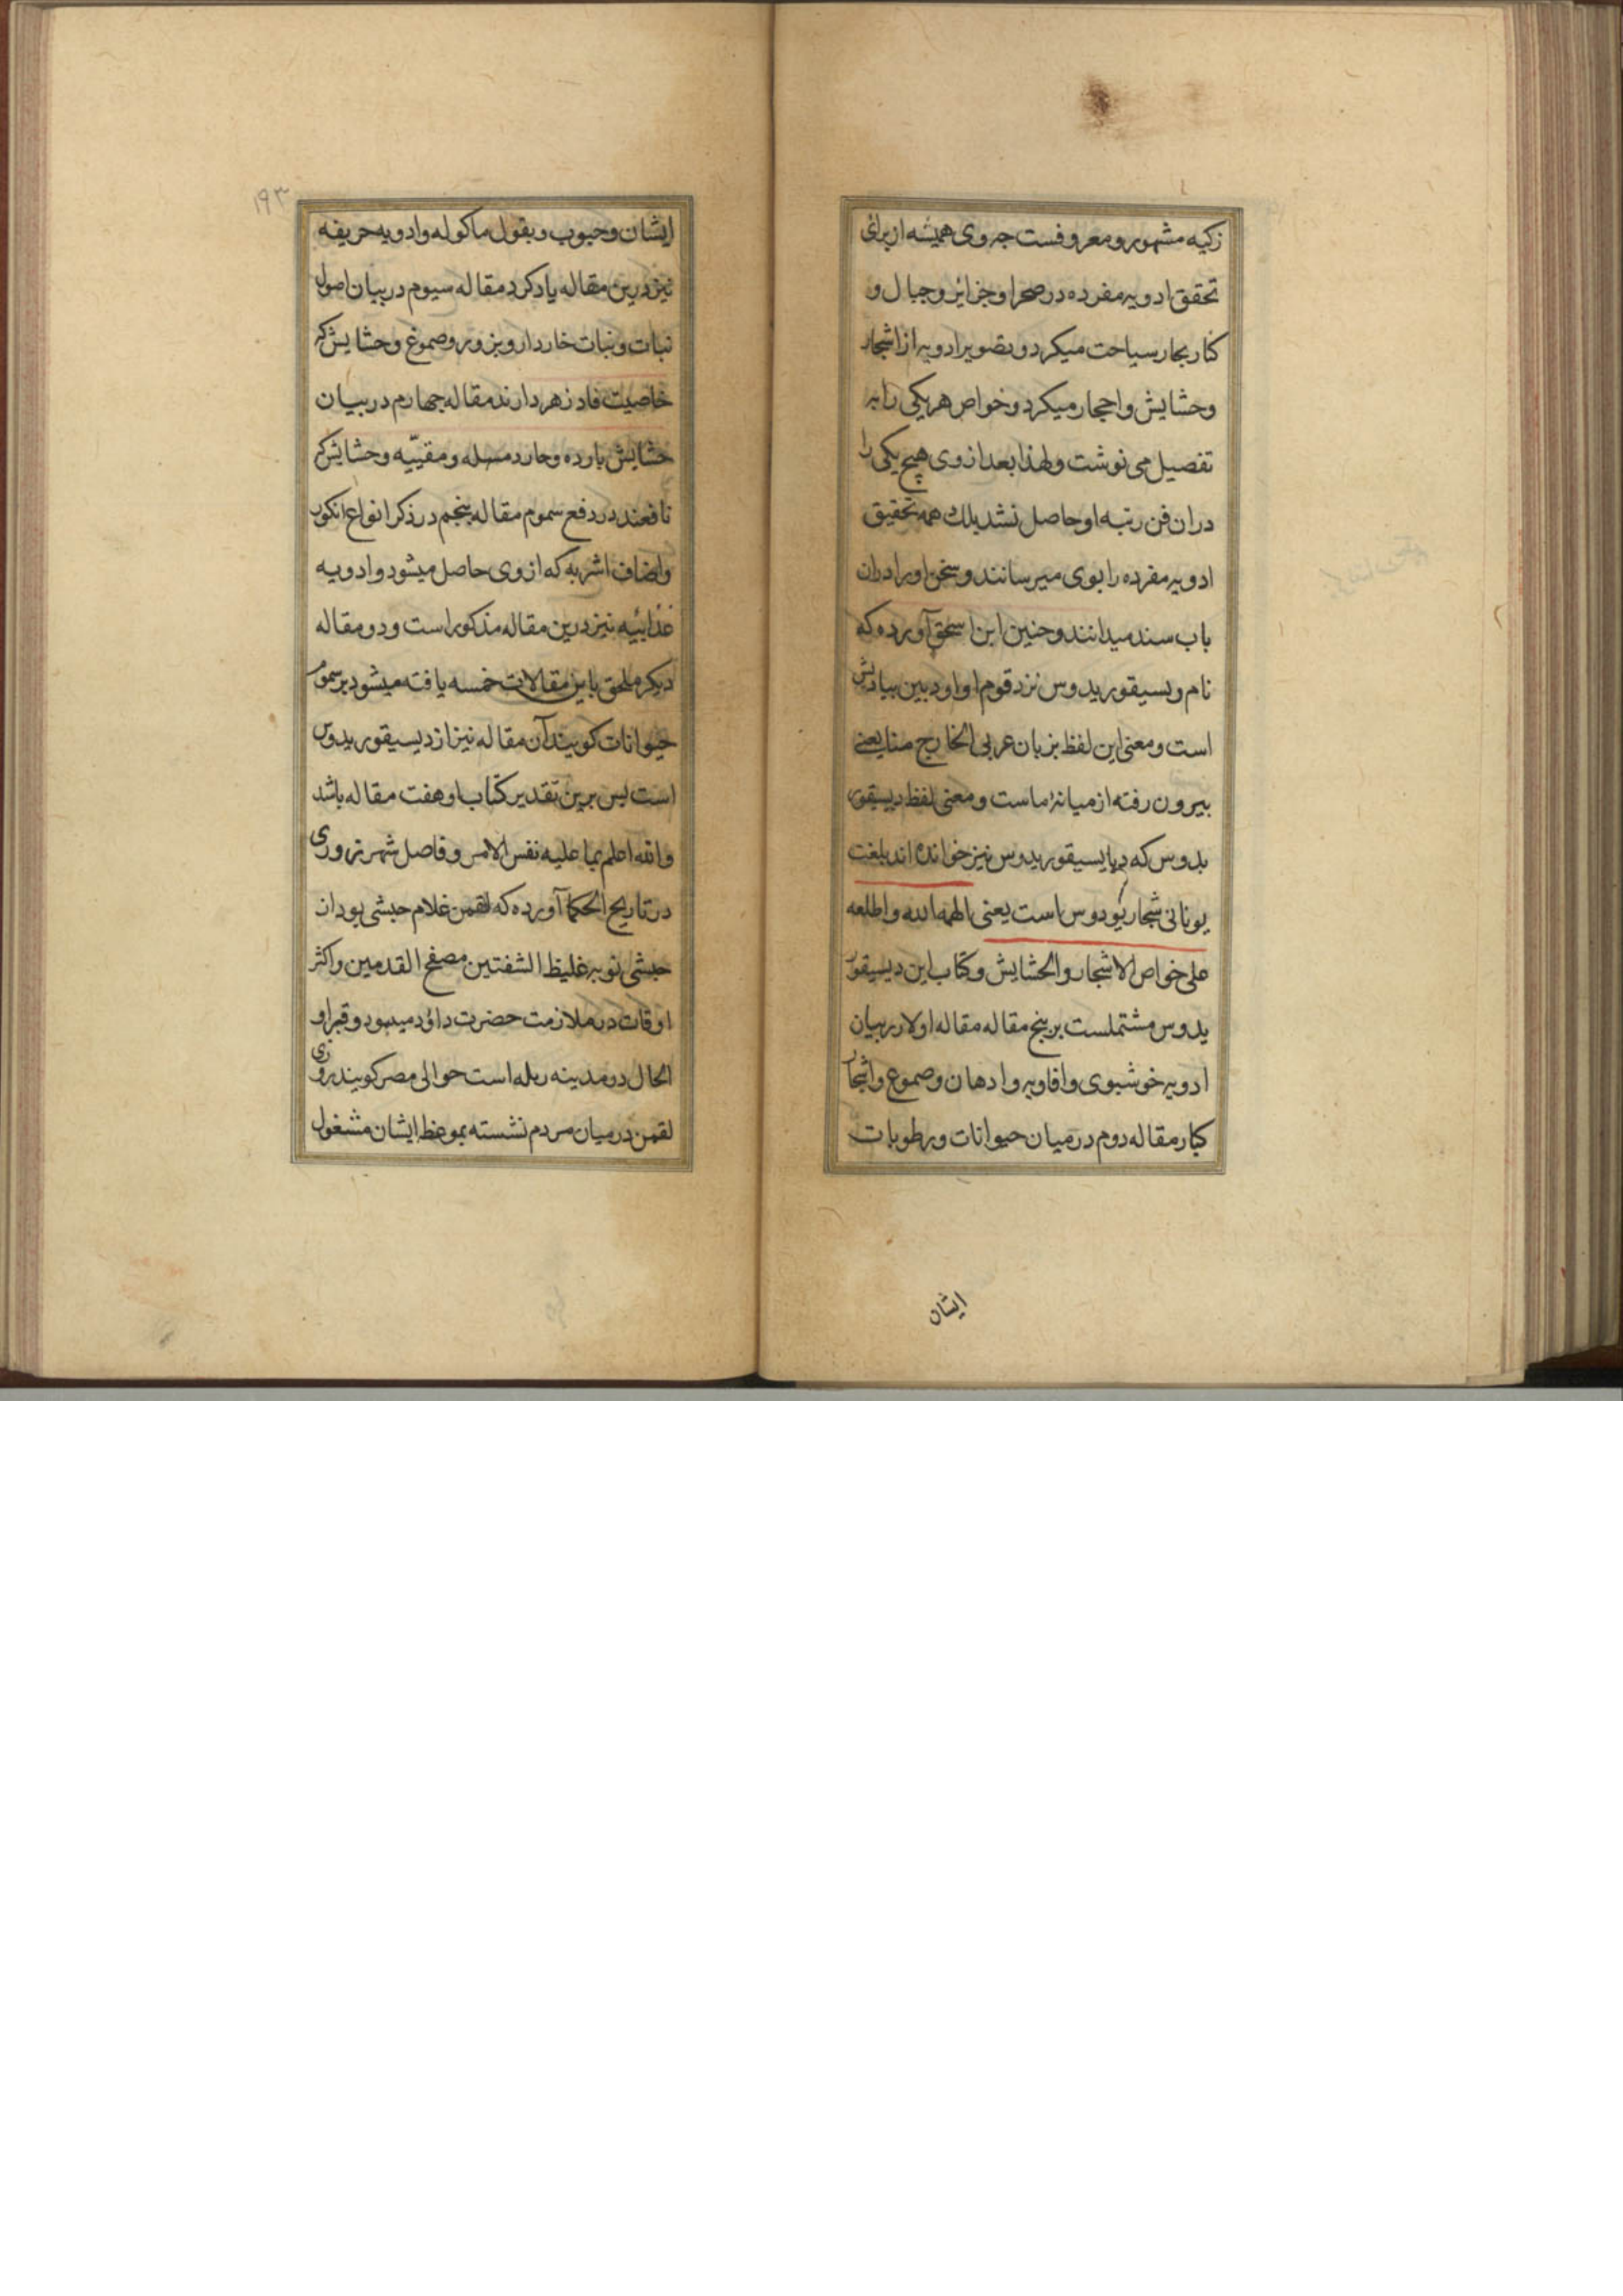 زکیه مشهور و معروفست چه وی همیشه از برای
تحقق ادویه مفرده در صحرا و جزائر و جبال و
کنار بحار سیاحت میکرد و تصویر ادویه از اشجار
وحشایش و احجار میکرد و خواص هر یکی را به
تفصیل می نوشت و لهذا بعد از وی هیچ یکی را
دران فن رتبه او حاصل نشد بلك همه تحقیق
ادویه مفرده را بوی میرسانند و سخن او را دران
باب سند میدانند و حنین ابن اسحق آورده که
نام ویسیقوریدوس نزد قوم او اود بین بیادیش
است و معنی این لفظ بزبان عربی الخارج منا یعنی
بیرون رفته از میانهٔ ماست و معنی لفظ دیسقوی
یدوس که دیایسیقوریدوس نیز خوانده اند بلغت
یونانی شجار یودوس است یعنی الهمه الله و اطلعه
علی خواص الاشجار و الحشایش و کتاب این دیسیقور
یدوس مشتملست بر پنج مقاله مقاله اولا در بیان
ادویه خوشبوی و افاویه و ادهان و صموع و اشجار
کبار مقاله دوم در میان حیوانات و رطوبات
ایشان
۱۹۳
ایشان و حبوب و بقول ماکوله و ادویه حریفه
نیز درین مقاله یاد کرد مقاله سیوم در بیان اصول
نبات و نبات خاردار و بزور و صموغ و حشایش که
خاصیت فادزهر دارند مقاله چهارم در بیان
حشایش بارده و حارد مسله و مقیّیه و حشایش که
نافعند در دفع سموم مقاله پنجم در ذکر انواع انکور
واضاف اشربه که از وی حاصل میشود و ادویه
غذائیه نیز درین مقاله مذکور است و دو مقاله
دیکر ملحق باین مقالات خمسه یافته میشود بر سموم
حیوانات کویند آن مقاله نیز از دیسیقوریدوس
است پس برین تقدیر کتاب او هفت مقاله باشد
والله اعلم بما علیه نفس الامر و فاصل شهرزوری
در تاریخ الحکما آورده که لقمن غلام حبشی بود از
حبشی نوبه غلیظ الشفتین مصفح القدمین و اکثر
اوقات در ملازمت حضرت داؤد میبود و قبر او
الحال در مدینه رمله است حوالی مصر کویند روزی
لقمن در میان مردم نشسته بموعظ ایشان مشغول